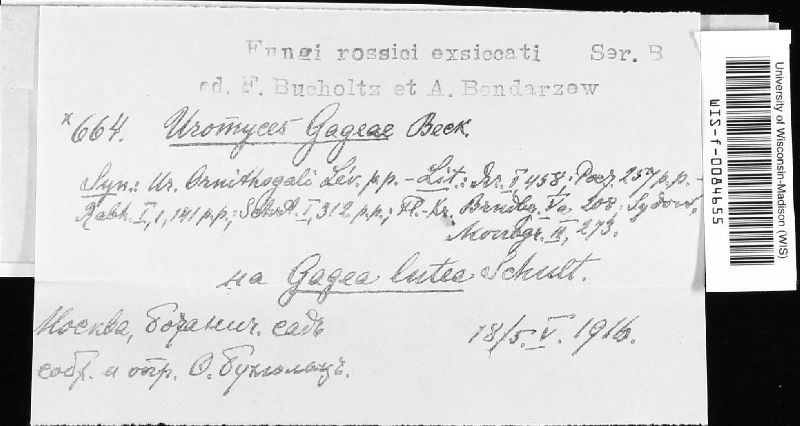 Fungi rossici exsiccati Ser. B
ed. F. Bucholtz et A. Bondarzew
x 664. Uromyces Gageae Beck.
Syn.: Ur. Ornithogali Lév. p.p. – Lit.: II 458; 257 p.p. –
Rabh. I, 1, 141 p.p.; Schröt. I, 312 p.p.; Fl. Kr. Brndbg. Va, 208; Sydow,
Monogr. II, 273.
на Gagea lutea Schult.
Москва, ботанич. садъ
18/5. V. 1916.
собр. и опр. Ѳ. Бухгольцъ.
University of Wisconsin-Madison (WIS)
WIS-f-0084655